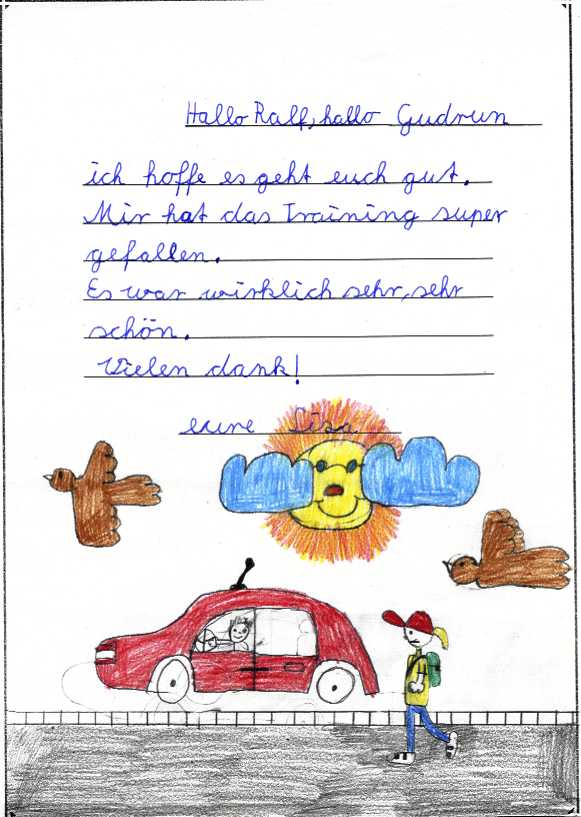 Hallo Ralf, hallo Gudrun
ich hoffe es geht euch gut.
Mir hat das Training super
gefallen.
Es war wirklich sehr, sehr
schön.
Vielen dank!
eure Lisa